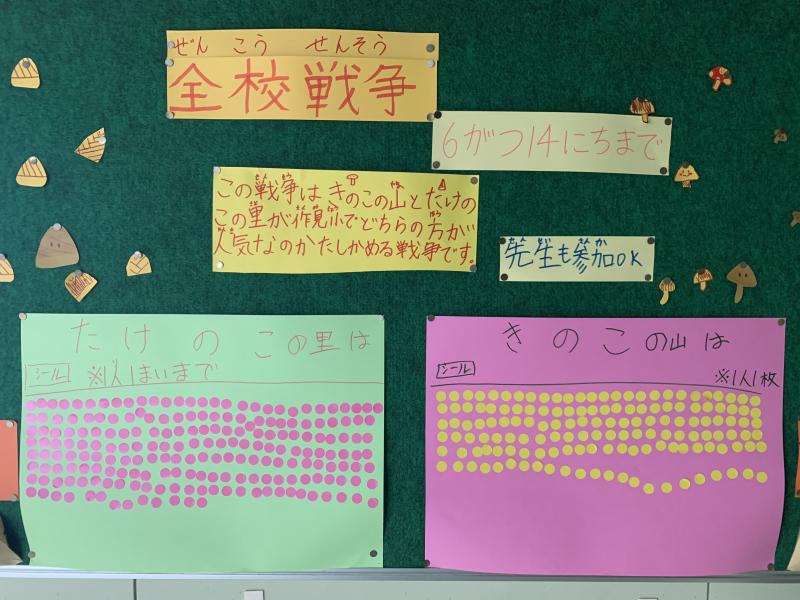 ぜん こう せんそう
全校戦争
6がつ14にちまで
この戦争はきのこの山とたけの
この里が作見小でどちらの方が
人気なのかたしかめる戦争です。
先生も参加OK
たけのこの里は
シール ※1人1まいまで
きのこの山は
シール ※1人1枚